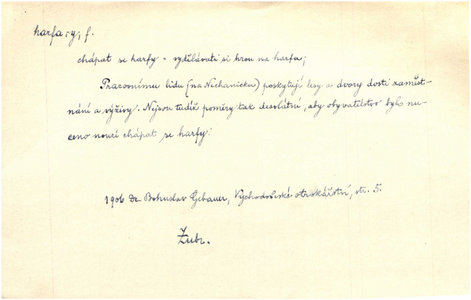 harfa, -y, f.
chápat se harfy - vydělávati si hrou na harfu;
Pracovnímu lidu (na Nechanicku) poskytují lesy a dvory dosti zaměst-
nání a výživy. Nejsou tudíž poměry tak desolátní, aby obyvatelstvo bylo nu-
ceno nouzí chápat se harfy.
1906 Dr. Bohuslav Gebauer, Východočeské str. 5.
Zubr.